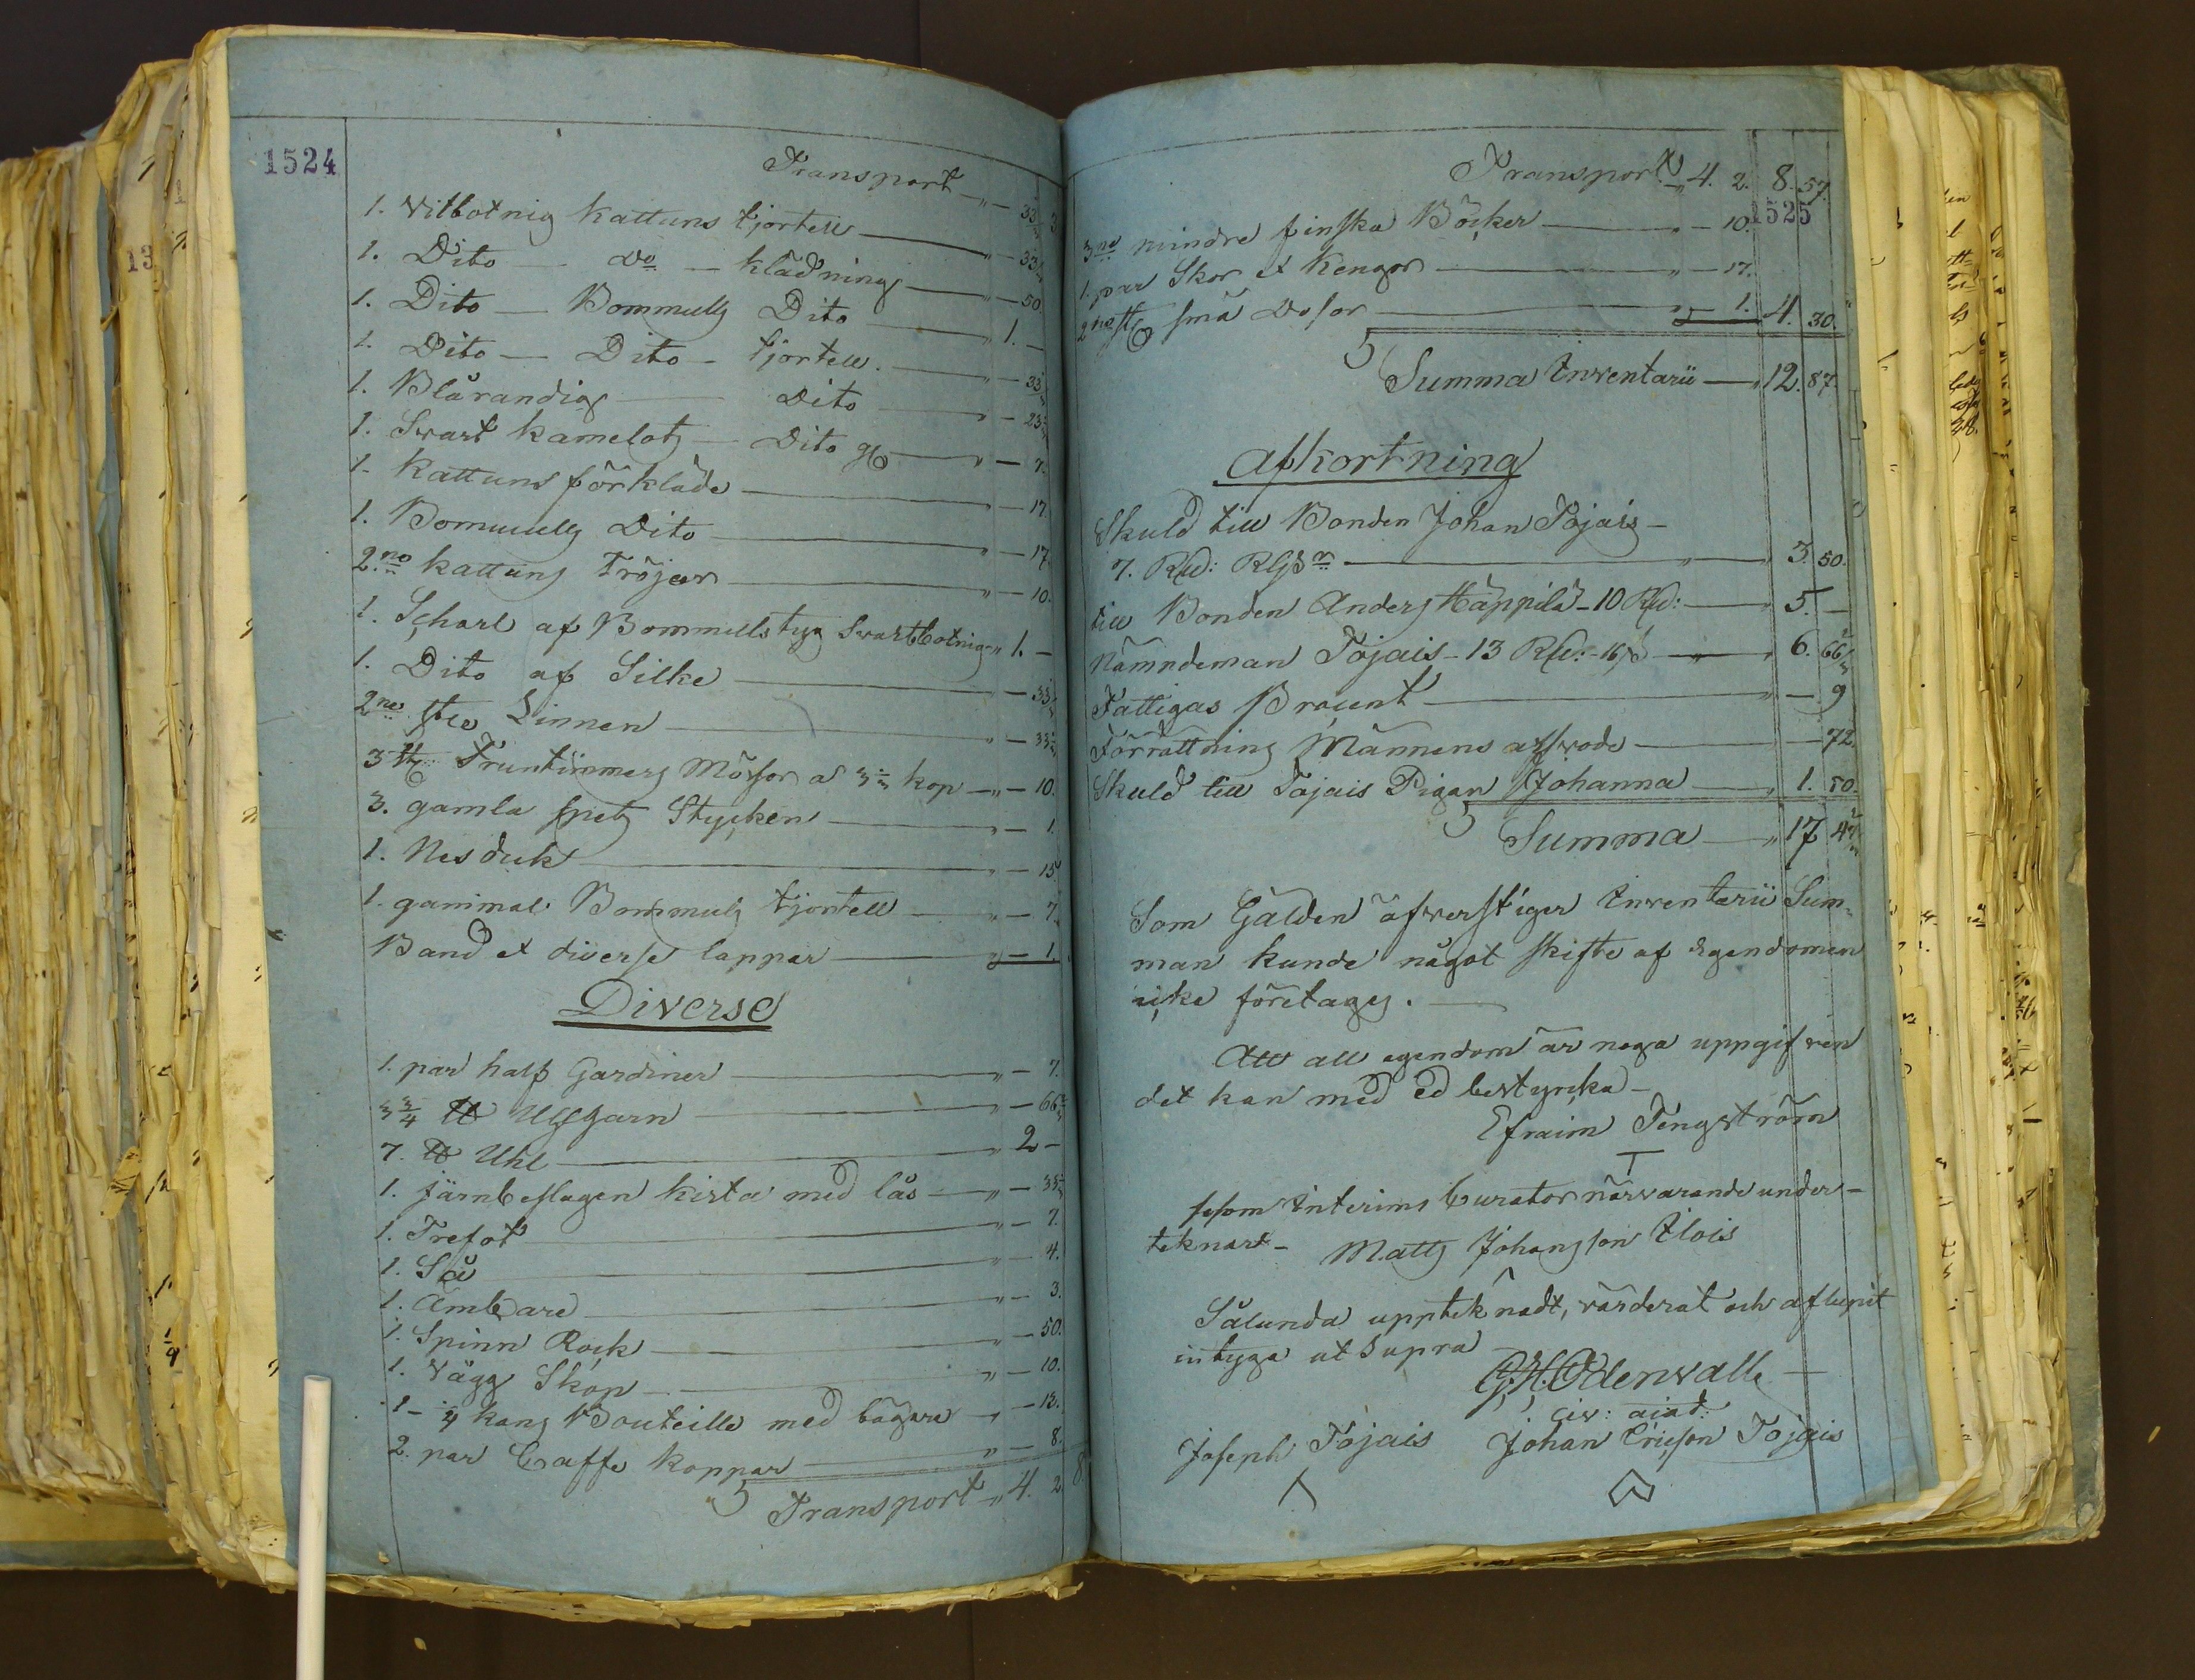 1524
Transport — " — 33 1/3 3
1. Vitbotnig Kattuns kjortell — " — 33 1/3
1. Dito — do — klädning — " — 50.
1. Dito — Bommulls Dito — " 1. —
1. Dito — Dito — kjortell. — " — 33 1/3
1. Blårandig — Dito — " — 23 1/3
1. Svart kamelots — Dito — " — 7.
1. Kattuns förkläde — " — 17.
1. Bomulls Dito — " — 17.
2.no kattuns tröjor — " — 10.
1. Scharl af Bommullstyg Svartbotnig " 1. —
1. Dito af Silke — " — 33 1/3
2no st. Linnen — " — 33 1/3
3 st: Fruntimmers Mössor a 3 1/3 kop — " — 10.
3. gamla spets Stycken — " — 1.
1. Nesduk — " — 15
1. gammal Bommuls kjortell — " — 7.
Band et diverse lappar — " — 1.
Diverse
1. par half Gardiner — " — 7.
3 3/4 ℔ Ullgarn — " — 66 2/3
7. ℔ Uhl — " 2 —
1. järnbeslagen kista med lås — " — 33 1/3
1. Trefot — " — 7.
1. Så — " — 4.
1. Ämbare — " — 3.
1. Spinn Rock — " — 50.
1. Vägg Skåp — " — 10.
1 — kans Bouteille med bägare — " — 12.
2. par Caffe koppar — " — 8.
Transport " 4. 2 8.
Transport " 4. 2. 8. 57.
1525
3ne mindre finska Böcker — " — 10.
1. par Skor et Kengor — " — 17.
2ne st små Dosor — " — 1. 4. 30.
Summa Inventarii — " 12. 87.
Afkortning
Skuld till Bonden Johan Tojais —
7. Rd: RGSr — " — 3. 50.
till Bonden Anders Häppilä — 10 Rd: — " 5. —
Nämndeman Tojais — 13 Rd: — 16 s — " 6. 66 2/3
Fattigas Procent — " — 9
Förrättning Männens arfvode — " — 72.
Skuld till Tojais Pigan Johanna — " 1. 50.
Summa — " 17 47 2/3
Som Gälden öfverstiger Inventarii Sum-
man kunde något skifte af Egendomen
icke företagas. —
Att all egendom är noga uppgifven
det kan med ed bestyrcka —
Efraim Tengström
T
såsom Interims Curator närvarande under-
teknart — Matts Johansson Ilois
Sålunda upptek nadt, värderat och aflupit
intyga ut Supra
G. H. Odenvalle —
Joseph Tojais Johan Ericson Tojais